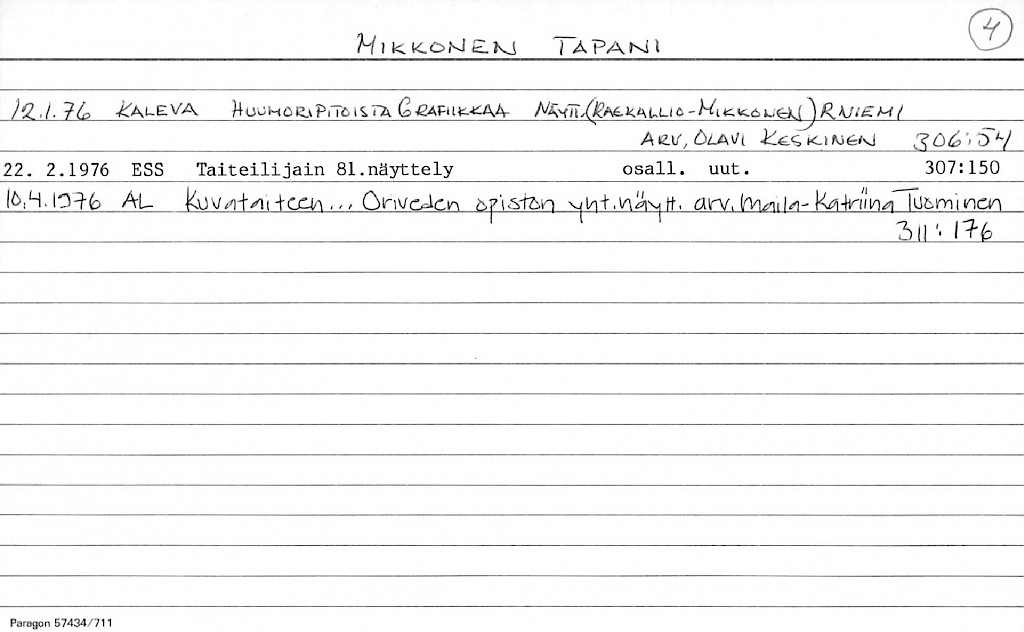 4
MIKKONEN TAPANI
12.1.76 KALEVA HUUMORIPITOISTA GRAFIIKKAA NÄYTT. (RAEKALLIO-MIKKONEN) RNIEMI
ARV, OLAVI KESKINEN 306:54
22. 2.1976 ESS Taiteilijain 81.näyttely osall. uut. 307:150
10.4.1976 AL Kuvataiteen... Oriveden opiston yht.näytt. arv. Maila-Katriina Tuominen
311:176
Paragon 57434/711